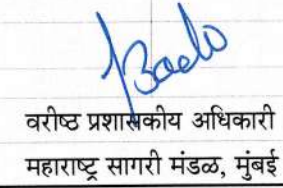 वरीष्ठ प्रशासकीय अधिकारी
महाराष्ट्र सागरी मंडळ, मुंबई